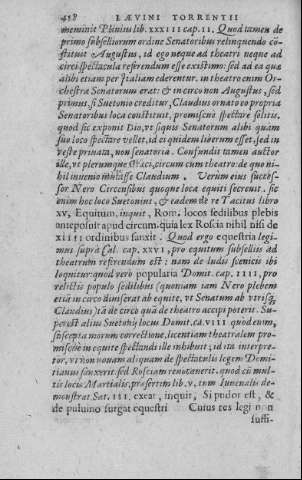 458 LÆVINI TORRENTII
meminit Plinius lib. xxxiii cap. ii. Quod tamen de
primo subselliorum ordine Senatoribus relinquendo cō-
stituit Augustus, id ego neque ad theatri neque ad
circi spectacula referendum esse existimo: sed ad ea quæ
alibi etiam per Italiam ederentur. in theatro enim Or-
chestra Senatorum erat: & in circo non Augustus, sed
primus, si Suetonio creditur, Claudius ornato eo propria
Senatoribus loca constituit, promiscuè spectare solitis,
quod sic exponit Dio, vt siquis Senatorum alibi quàm
suo loco spectare vellet, id ei quidem liberum esset, sed in
veste priuata, non senatoria. Confundit tamen auctor
ille, vt plerumque Græci, circum cum theatro: de quo ni-
hil inuenio mutasse Claudium. Verùm eius succes-
sor Nero Circensibus quoque loca equiti secreuit. sic
enim hoc loco Suetonius, & eadem de re Tacitus libro
xv, Equitum, inquit, Rom. locos sedilibus plebis
anteposuit apud circum. quia lex Roscia nihil nisi de
xiiii ordinibus sanxit. Quod ergo equestria legi-
mus suprà Cal. cap. xxvi, pro equitum subselliis ad
theatrum referendum est: nam de ludis scenicis ibi
loquitur: quod verò popularia Domit. cap. iiii, pro
relictis populo sedilibus (quoniam iam Nero plebem
etiā in circo diuiserat ab equite, vt Senatum ab vtrisq;
Claudius) tā de circo quā de theatro accipi poterit. Sup-
perest alius Suetonij locus Domit. ca. viii quod eum,
suscepta morum correctione, licentiam theatralem pro-
miscuè in equite spectandi ille inhibuit, id ita interpre-
tor, vt non nouam aliquam de spectaculis legem Domi-
tianus sanxerit. sed Rosciam renouauerit. quod cū mul-
tis locis Martialis, præsertim lib. v, tum Iuuenalis de-
monstrat Sat. iii. exeat, inquit, Si pudor est, &
de puluino surgat equestri Cuius res legi non
suffi-